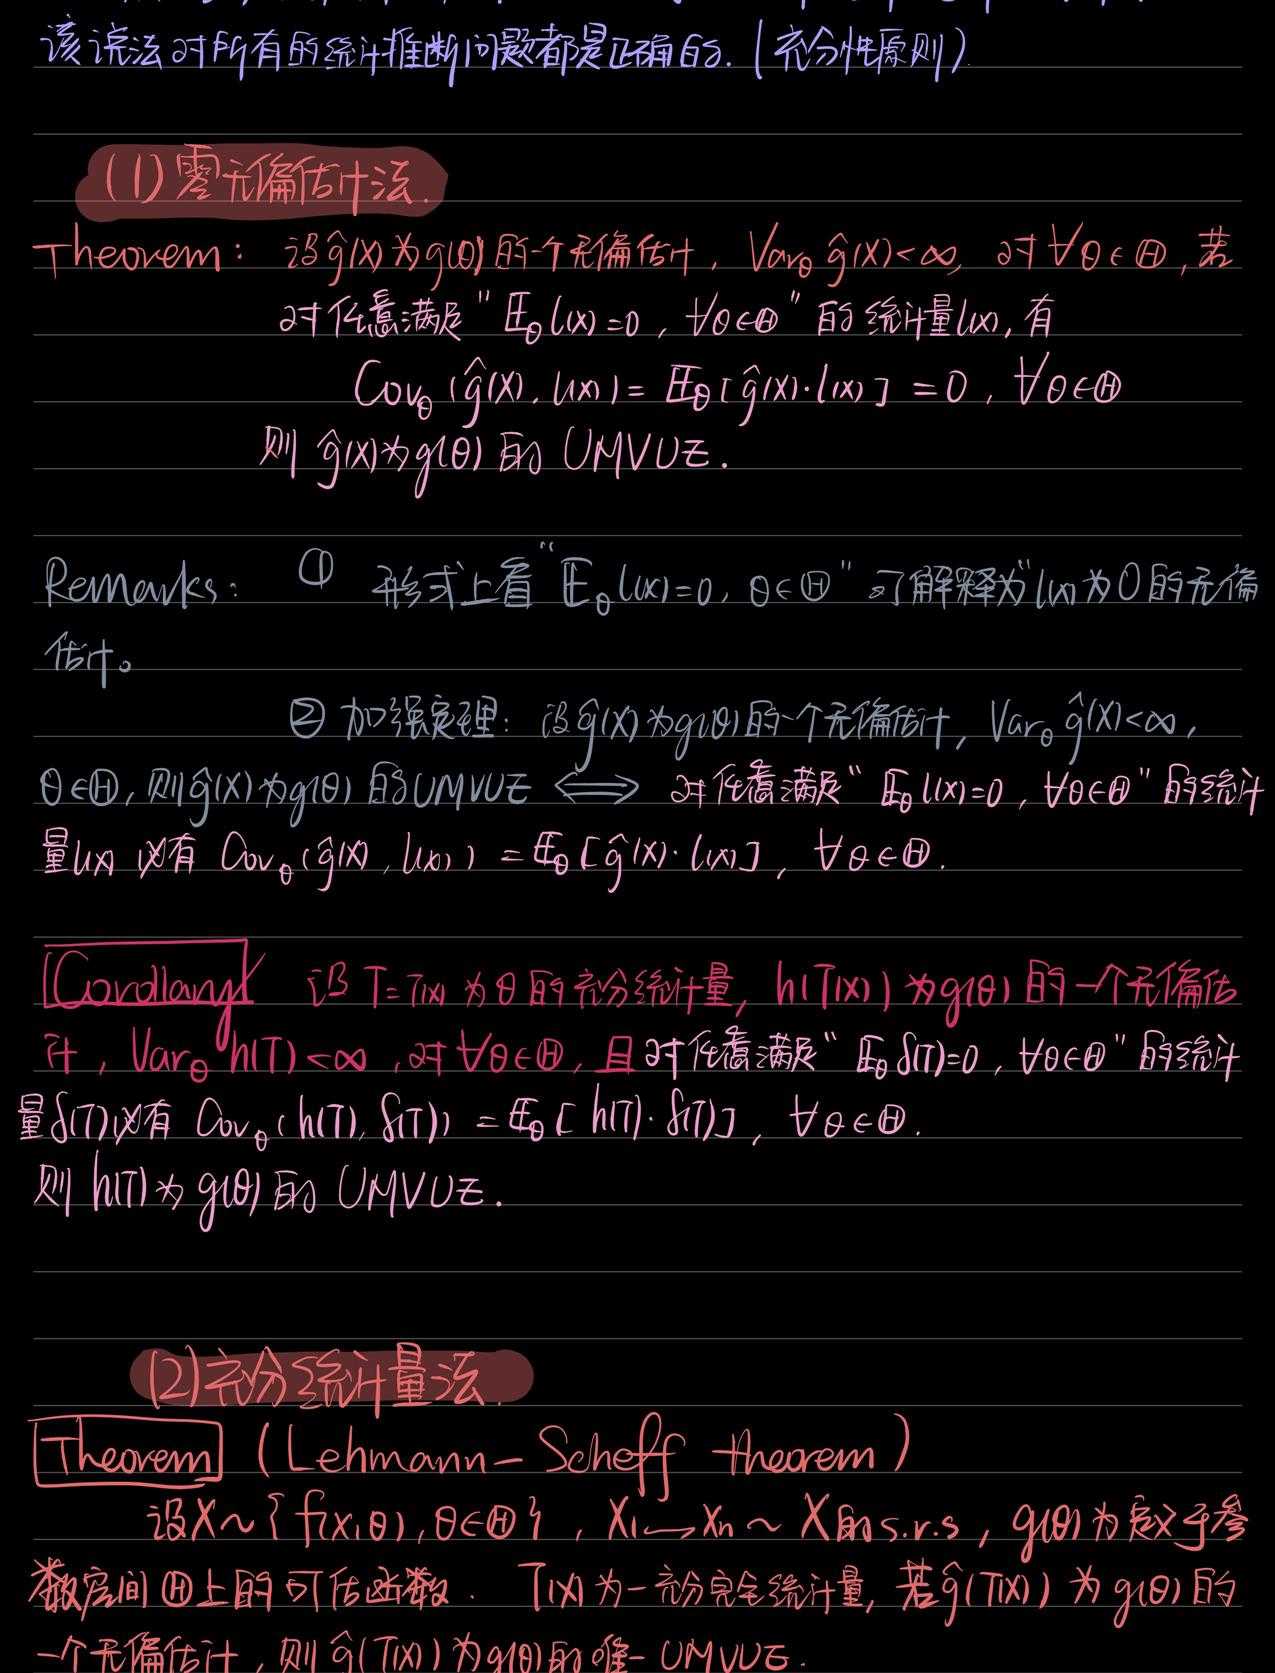 该说法对所有的统计推断问题都是正确的.(充分性原则).
(1) 零无偏估计法.
Theorem: 设ĝ(X)为g(θ)的一个无偏估计, Varθ ĝ(X)<∞, 对∀θ∈Θ, 若
对任意满足"Eθ l(X)=0, ∀θ∈Θ"的统计量l(X), 有
Covθ(ĝ(X), l(X)) = Eθ[ĝ(X)·l(X)] = 0, ∀θ∈Θ
则 ĝ(X)为g(θ)的 UMVUE.
Remarks: ① 形式上看"Eθ l(X)=0, θ∈Θ"可解释为"l(X)为0的无偏
估计。
② 加强定理: 设ĝ(X)为g(θ)的一个无偏估计, Varθ ĝ(X)<∞,
θ∈Θ, 则ĝ(X)为g(θ)的UMVUE ⟺ 对任意满足"Eθ l(X)=0, ∀θ∈Θ"的统计
量l(X) 必有 Covθ(ĝ(X), l(X)) = Eθ[ĝ(X)·l(X)], ∀θ∈Θ.
Corollary 设T=T(X)为θ的充分统计量, h(T(X))为g(θ)的一个无偏估
计, Varθ h(T)<∞, 对∀θ∈Θ, 且对任意满足"Eθ δ(T)=0, ∀θ∈Θ"的统计
量δ(T)必有 Covθ(h(T), δ(T)) = Eθ[h(T)·δ(T)], ∀θ∈Θ.
则 h(T)为g(θ)的 UMVUE.
(2) 充分统计量法.
Theorem (Lehmann-Scheff theorem)
设X~{f(x,θ), θ∈Θ}, X1…Xn ~ X的s.r.s, g(θ)为定义于参
数空间Θ上的可估函数. T(X)为一充分完全统计量, 若ĝ(T(X))为g(θ)的
一个无偏估计, 则ĝ(T(X))为g(θ)的唯一UMVUE.